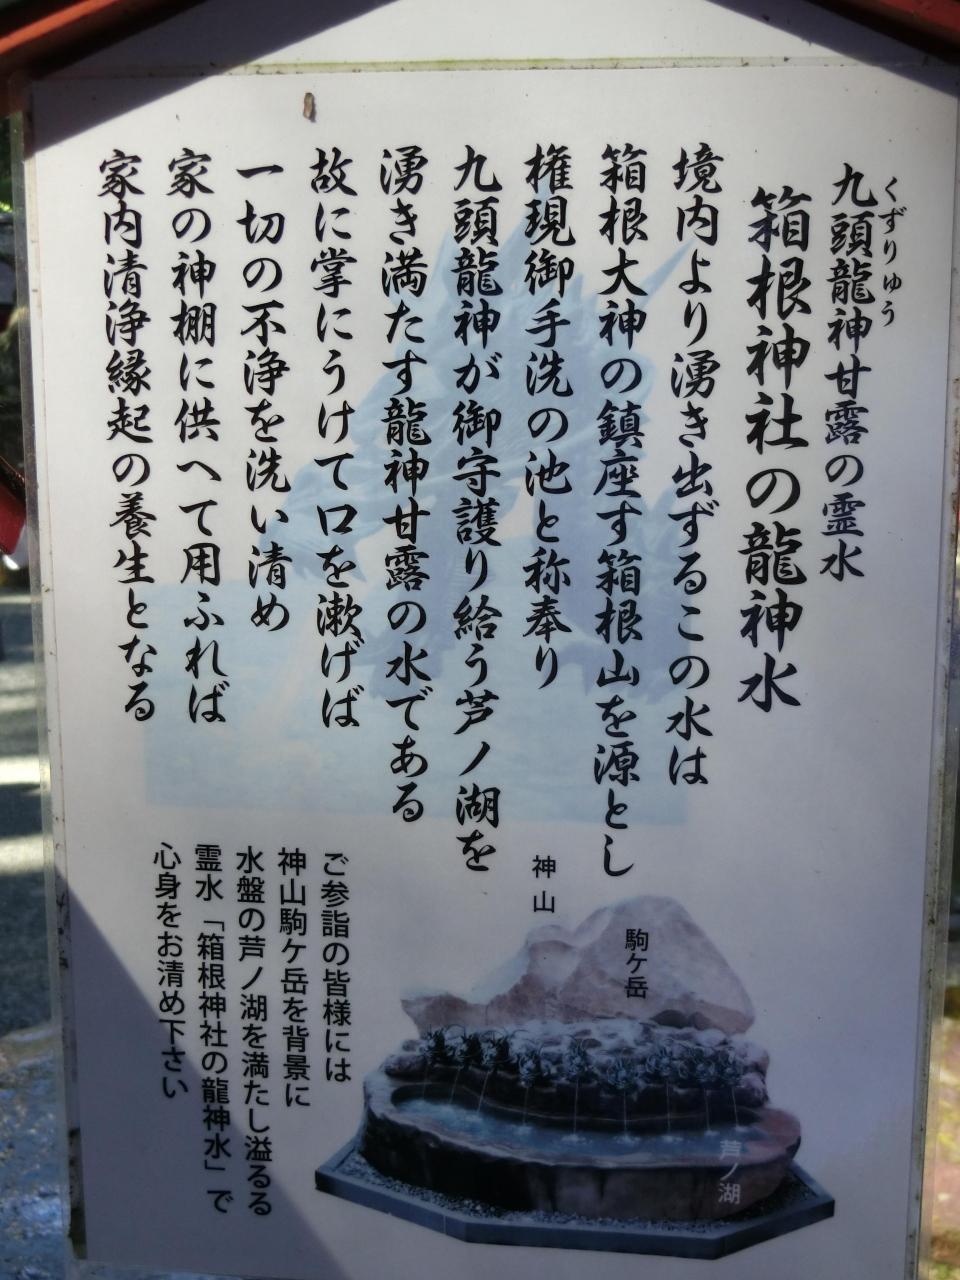 九頭龍神甘露の霊水
くずりゅう
箱根神社の龍神水
境内より湧き出ずるこの水は
箱根大神の鎮座す箱根山を源とし
権現御手洗の池と称奉り
九頭龍神が御守護り給う芦ノ湖を
湧き満たす龍神甘露の水である
故に掌にうけて口を漱げば
一切の不浄を洗い清め
家の神棚に供へて用ふれば
家内清浄縁起の養生となる
神山
駒ケ岳
芦ノ湖
ご参詣の皆様には
神山駒ケ岳を背景に
水盤の芦ノ湖を満たし溢るる
霊水「箱根神社の龍神水」で
心身をお清め下さい